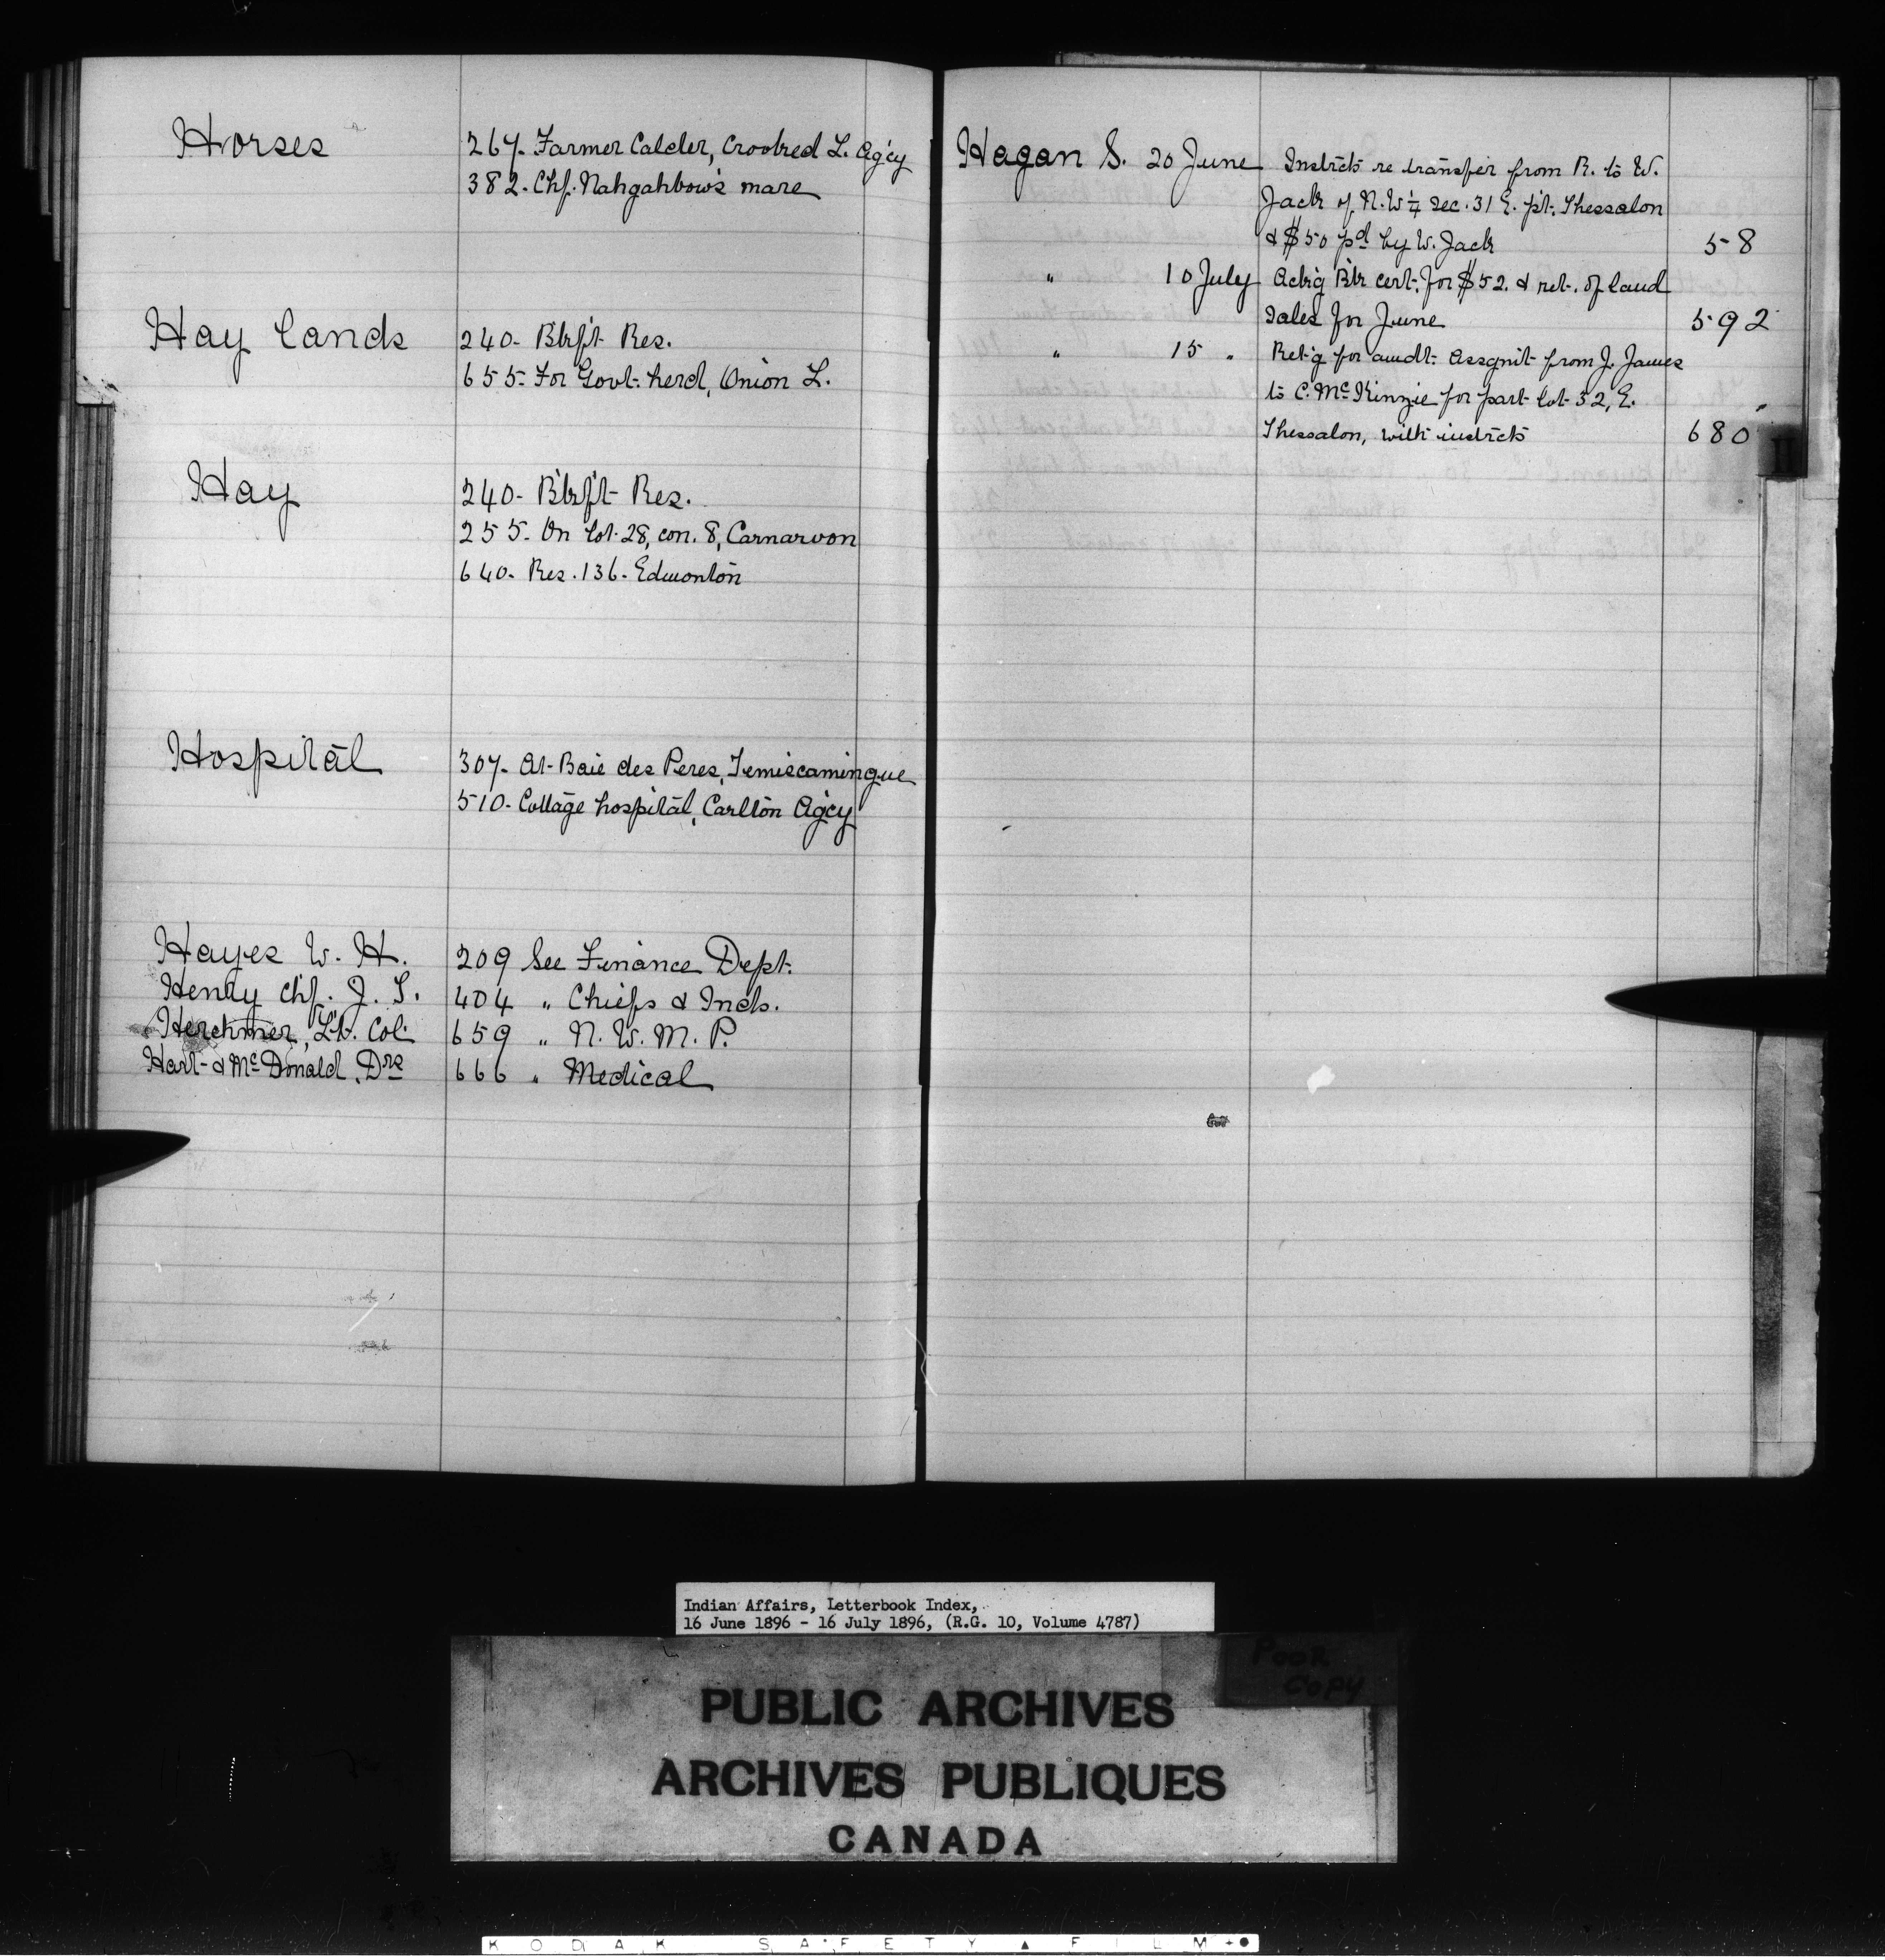 Horses
267- Farmer Calder, Crooked L. Ag'cy
382- Chf. Nahgahbow's mare
Hay lands
240- Blkft Res.
655- For Govt. herd, Onion L.
Hay
240- Blkft Res.
255- On lot 28, con. 8, Carnarvon
640- Res. 136- Edmonton
Hospital
307- At Baie des Peres, Temiscamingue
510- Cottage hospital, Carlton Ag'cy
Hayes W. H. 209 See Finance Dept.
Henry Chf. J. S. 404 " Chiefs & Inds.
Herchmer, Lt. Col. 659 " N. W. M. P.
Hart & McDonald, Drs 666 " Medical
Hagan S. 20 June Instrcts re transfer from R. to W.
Jack of N.W ¼ sec. 31 E. pt. Thessalon
& $50 pd by W. Jack 58
" 10 July Ack'g Bk cert. for $52. & ret. of land
sales for June 592
" 15 " Ret'g for amdt. assgnt from J. James
to C. McKinzie for part lot 32, E.
Thessalon, with instrcts 680
Indian Affairs, Letterbook Index,
16 June 1896 - 16 July 1896, (R.G. 10, Volume 4787)
POOR
COPY
PUBLIC ARCHIVES
ARCHIVES PUBLIQUES
CANADA
KODAK SAFETY ▲ FILM